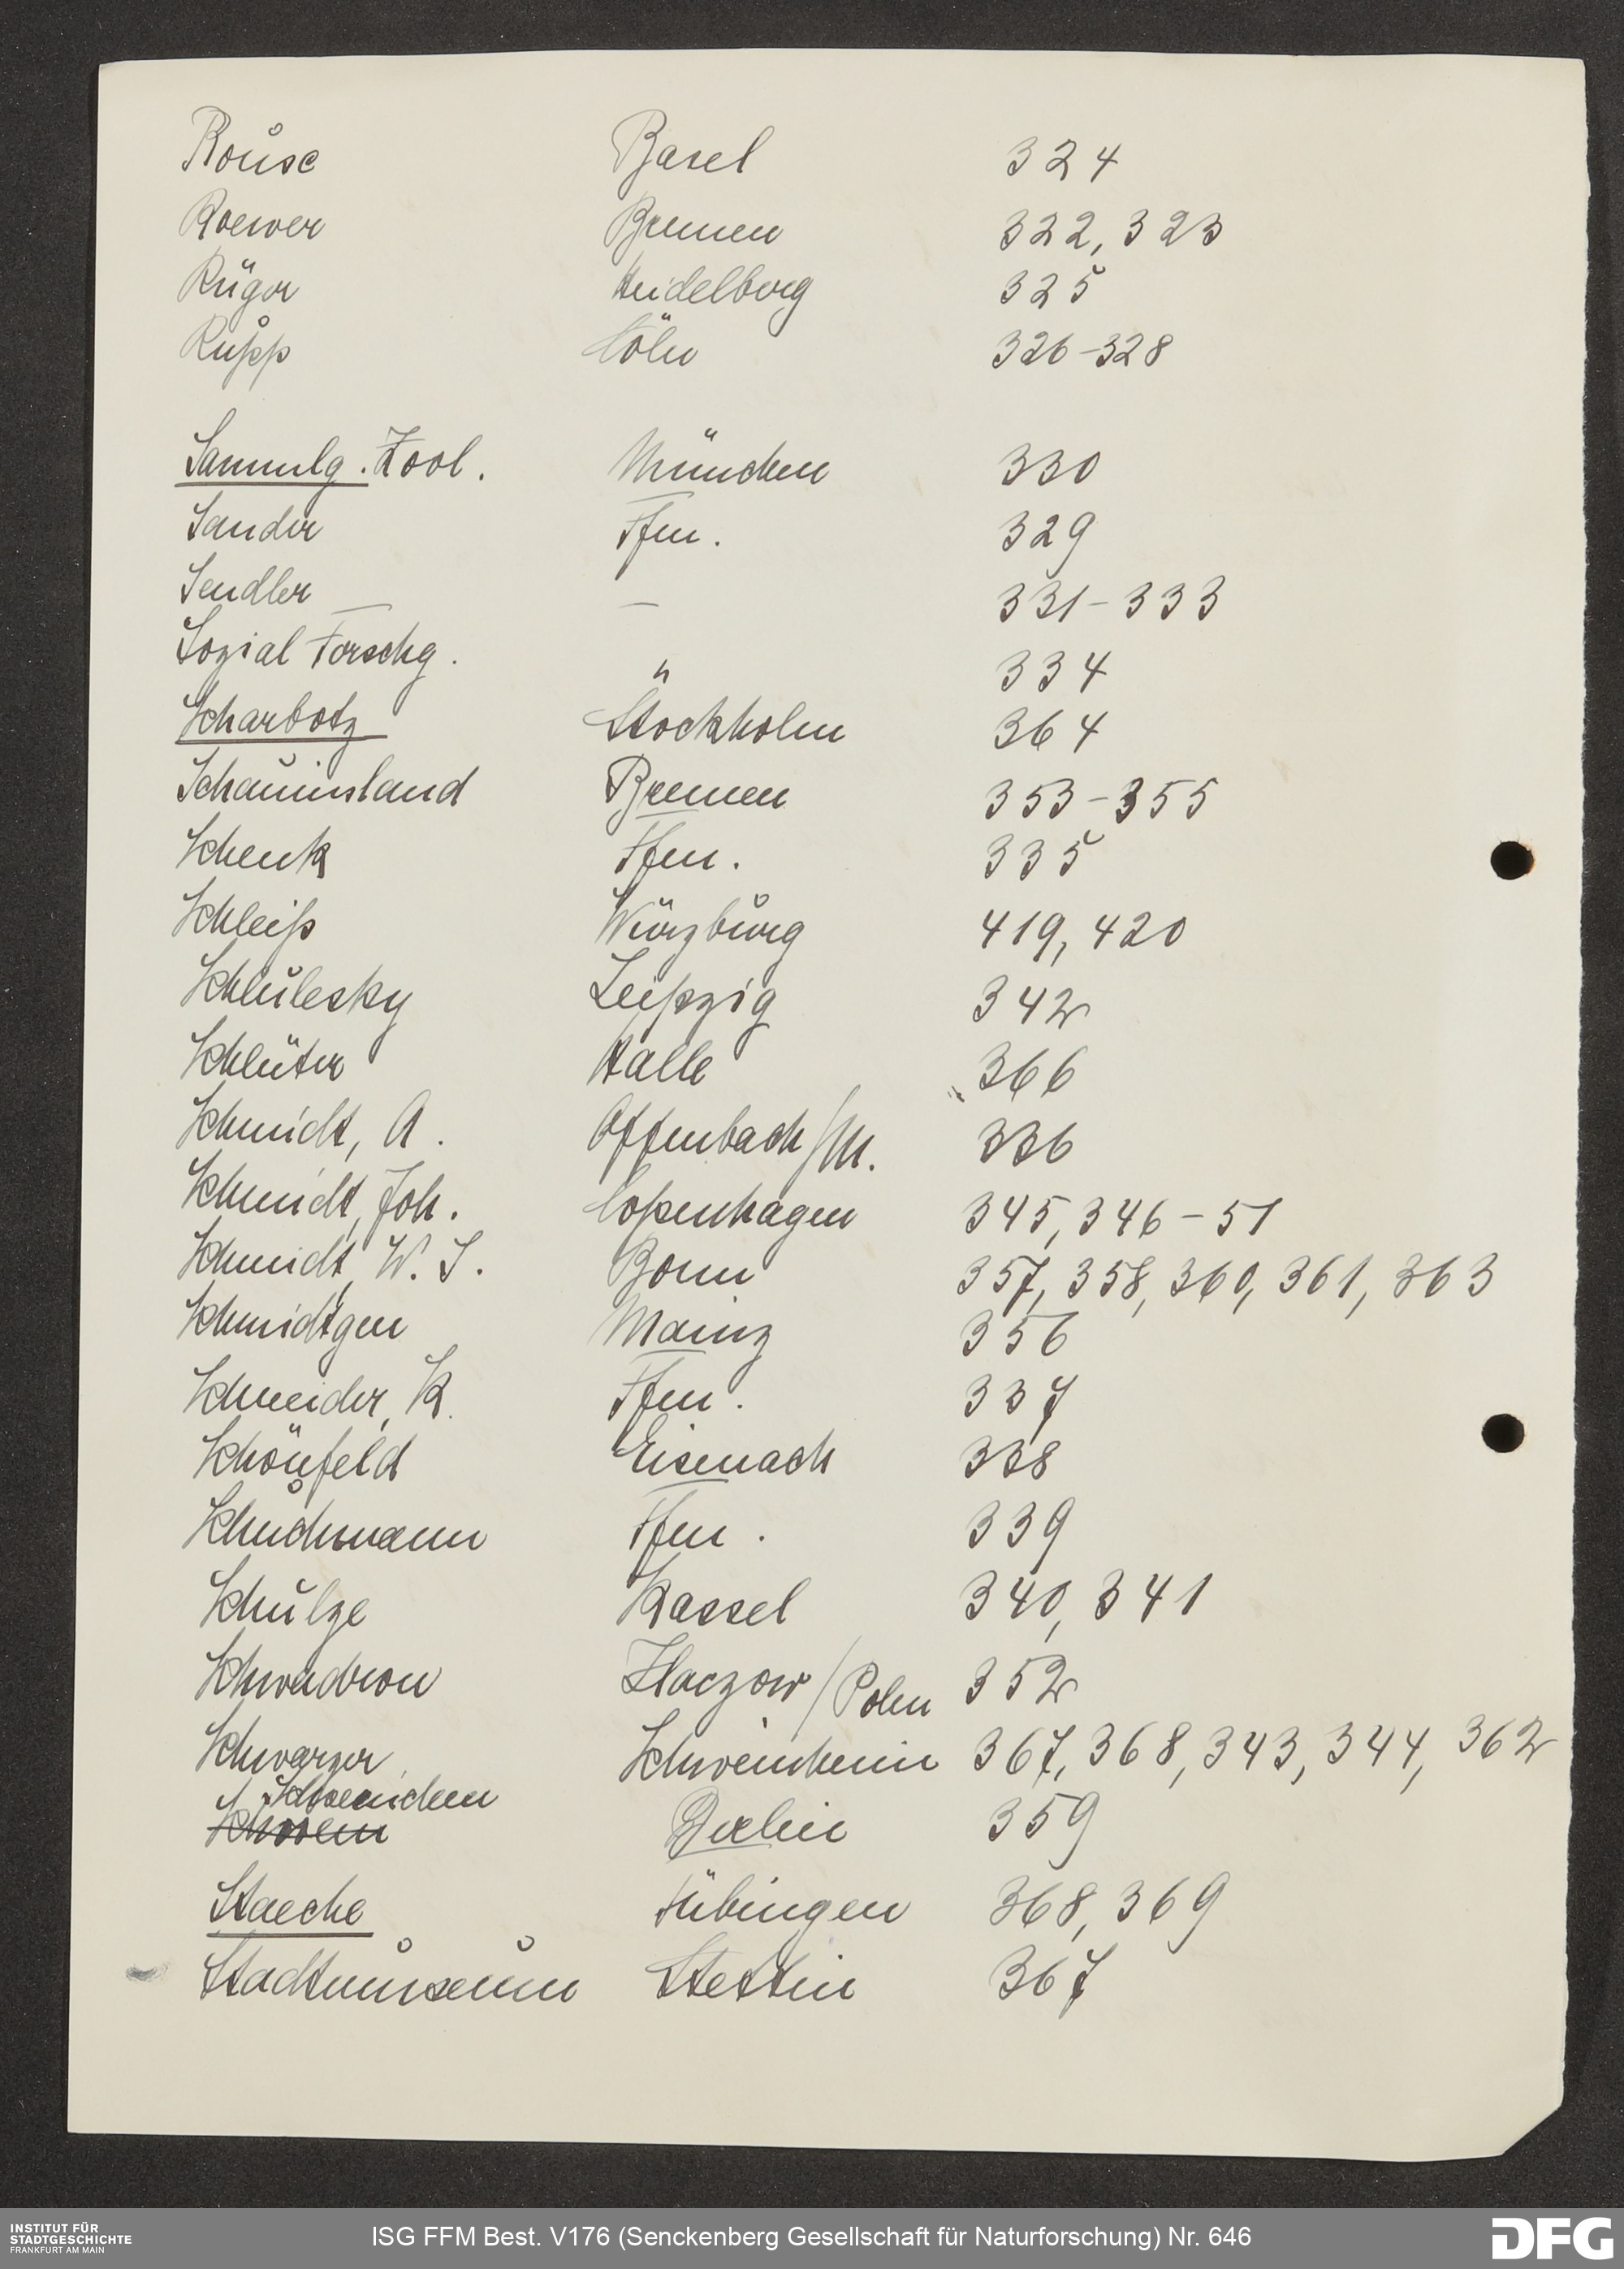 Rouse Basel 324
Roewer Bremen 322, 323
Rüger Heidelberg 325
Rupp Cöln 326-328
Sammlg. Zool. München 330
Sander Ffm. 329
Sendler — 331-333
Sozial Forschg. " 334
Scharbotz Stockholm 364
Schauinsland Bremen 353-355
Schenk Ffm. 335
Schleiß Würzburg 419, 420
Schlulesky Leipzig 342
Schlüter Halle 366
Schmidt, A. Offenbach/M. 336
Schmidt, Joh. Copenhagen 345, 346-51
Schmidt, W. J. Bonn 357, 358, 360, 361, 363
Schmidtgen Mainz 356
Schneider, K. Ffm. 337
Schönfeld Eisenach 338
Schuchmann Ffm. 339
Schulze Kassel 340, 341
Schwadron Zloczow/Polen 352
Schwarzer Schweinheim 367, 368, 343, 344, 362
Schoenichen
Schwem Berlin 359
Staeche Tübingen 368, 369
Stadtmuseum Stettin 367
INSTITUT FÜR
STADTGESCHICHTE
FRANKFURT AM MAIN
ISG FFM Best. V176 (Senckenberg Gesellschaft für Naturforschung) Nr. 646
DFG